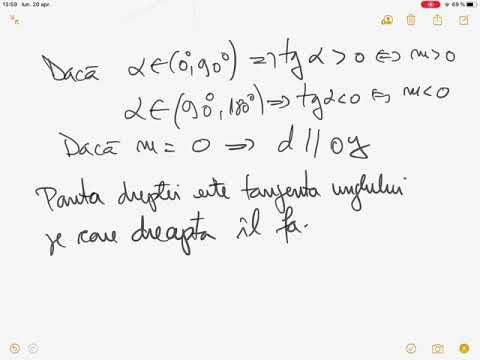 15:59 lun. 20 apr.
69 %
Dacă α∈(0°,90°) ⇒ tg α > 0 ⇔ m>0
α∈(90°,180°) ⇒ tgα<0 ⇔ m<0
Dacă m = 0 ⇒ d // oy
Panta dreptei este tangenta unghiului
pe care dreapta îl fa.